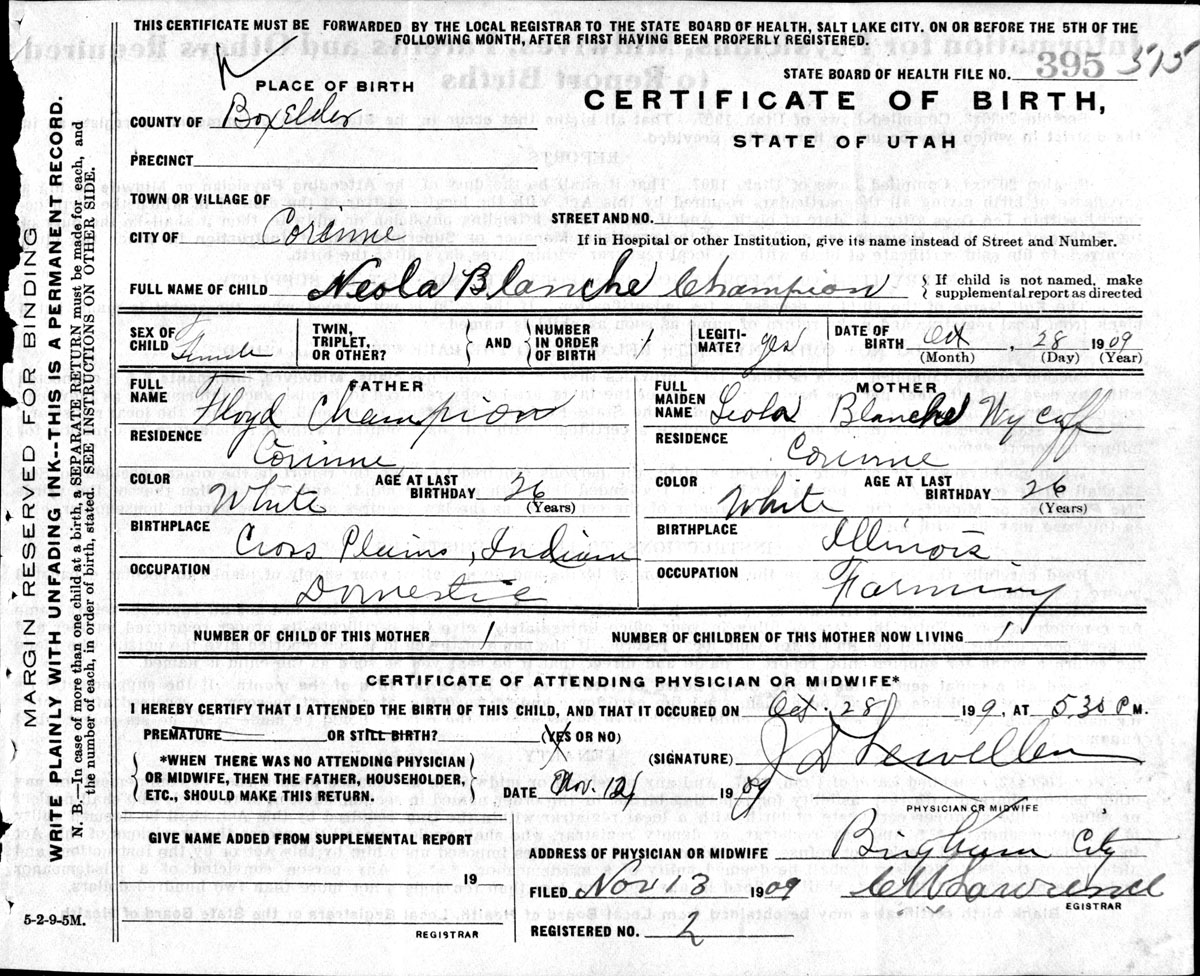 THIS CERTIFICATE MUST BE FORWARDED BY THE LOCAL REGISTRAR TO THE STATE BOARD OF HEALTH, SALT LAKE CITY. ON OR BEFORE THE 5TH OF THE
FOLLOWING MONTH, AFTER FIRST HAVING BEEN PROPERLY REGISTERED.
STATE BOARD OF HEALTH FILE NO. 395 375
PLACE OF BIRTH
CERTIFICATE OF BIRTH,
STATE OF UTAH
COUNTY OF Box Elder
PRECINCT
TOWN OR VILLAGE OF
STREET AND NO.
CITY OF Corinne
If in Hospital or other Institution, give its name instead of Street and Number.
FULL NAME OF CHILD Neola Blanche Champion
If child is not named, make
supplemental report as directed
SEX OF CHILD Female
TWIN, TRIPLET, OR OTHER?
AND
NUMBER IN ORDER OF BIRTH 1
LEGITIMATE? yes
DATE OF BIRTH Oct, 28 1909
(Month) (Day) (Year)
FATHER
FULL NAME Floyd Champion
RESIDENCE Corinne
COLOR White
AGE AT LAST BIRTHDAY 26
(Years)
BIRTHPLACE Cross Plains, Indian
OCCUPATION Domestic
MOTHER
FULL MAIDEN NAME Leola Blanche Wycoff
RESIDENCE Corinne
COLOR White
AGE AT LAST BIRTHDAY 26
(Years)
BIRTHPLACE Illinois
OCCUPATION Farming
NUMBER OF CHILD OF THIS MOTHER 1
NUMBER OF CHILDREN OF THIS MOTHER NOW LIVING 1
CERTIFICATE OF ATTENDING PHYSICIAN OR MIDWIFE*
I HEREBY CERTIFY THAT I ATTENDED THE BIRTH OF THIS CHILD, AND THAT IT OCCURED ON Oct. 28 199, AT 5.30 P.M.
PREMATURE OR STILL BIRTH? (YES OR NO)
*WHEN THERE WAS NO ATTENDING PHYSICIAN
OR MIDWIFE, THEN THE FATHER, HOUSEHOLDER,
ETC., SHOULD MAKE THIS RETURN.
(SIGNATURE) J D Lewellen
DATE Nov. 12, 1909
PHYSICIAN OR MIDWIFE
GIVEN NAME ADDED FROM SUPPLEMENTAL REPORT
19
REGISTRAR
ADDRESS OF PHYSICIAN OR MIDWIFE Brigham City
FILED Nov. 13 1909 Lawrence
EGISTRAR
REGISTERED NO. 2
5-2-9-5M.
MARGIN RESERVED FOR BINDING
WRITE PLAINLY WITH UNFADING INK--THIS IS A PERMANENT RECORD.
N. B.—In case of more than one child at a birth, a SEPARATE RETURN must be made for each, and
the number of each, in order of birth, stated. SEE INSTRUCTIONS ON OTHER SIDE.